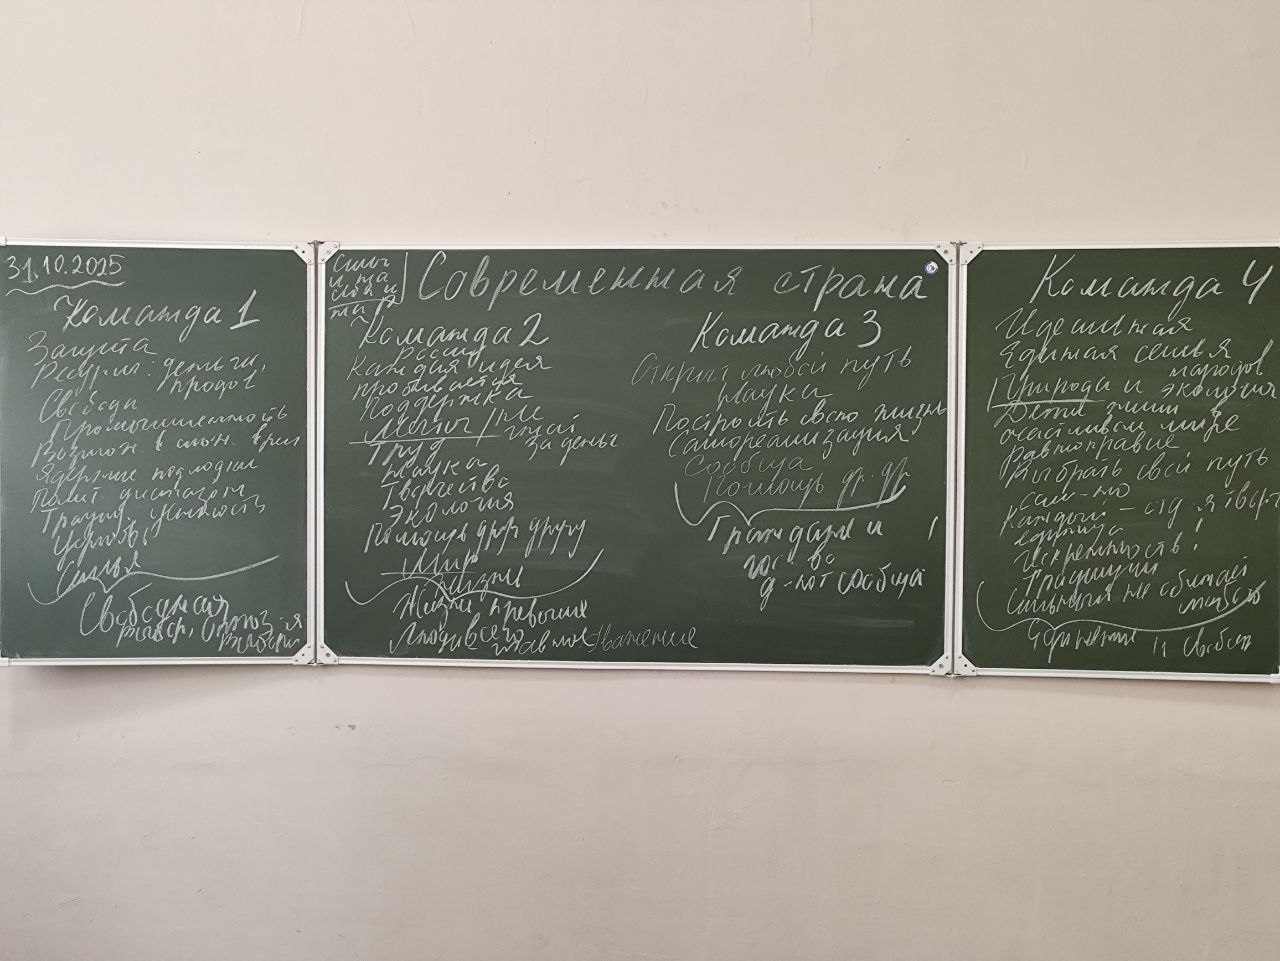 31.10.2025
Команда 1
Защита
Ресурсы: деньги,
продов
Свобода
Промышленность
Возмож. в слож. врем
Ядерные подлодки
Полит.
Традиц. ценность
Семья
Свободная
Современная страна
Команда 2
Россия
Каждая идея
пробивается
Поддержка
Мечты / не
за деньг
Труд
Наука
Творчество
Экология
Помощь друг другу
Мир
Жизнь
Жизнь превыше
Люди всего
главное Уважение
Команда 3
Открыт любой путь
Наука
Построить свою жизнь
Самореализация
Сообща
Помощь др. др.
Граждане и
гос-во
д-ют сообща
Команда 4
Идеальная
Единая семья
народов
Природа и экология
Дети
счастливом мире
Равноправие
Выбрать свой путь
сам-но
Каждый - отд-я творч
единица
Искренность!
Традиции
Сильный не обижает
слабого
Единение и свобода